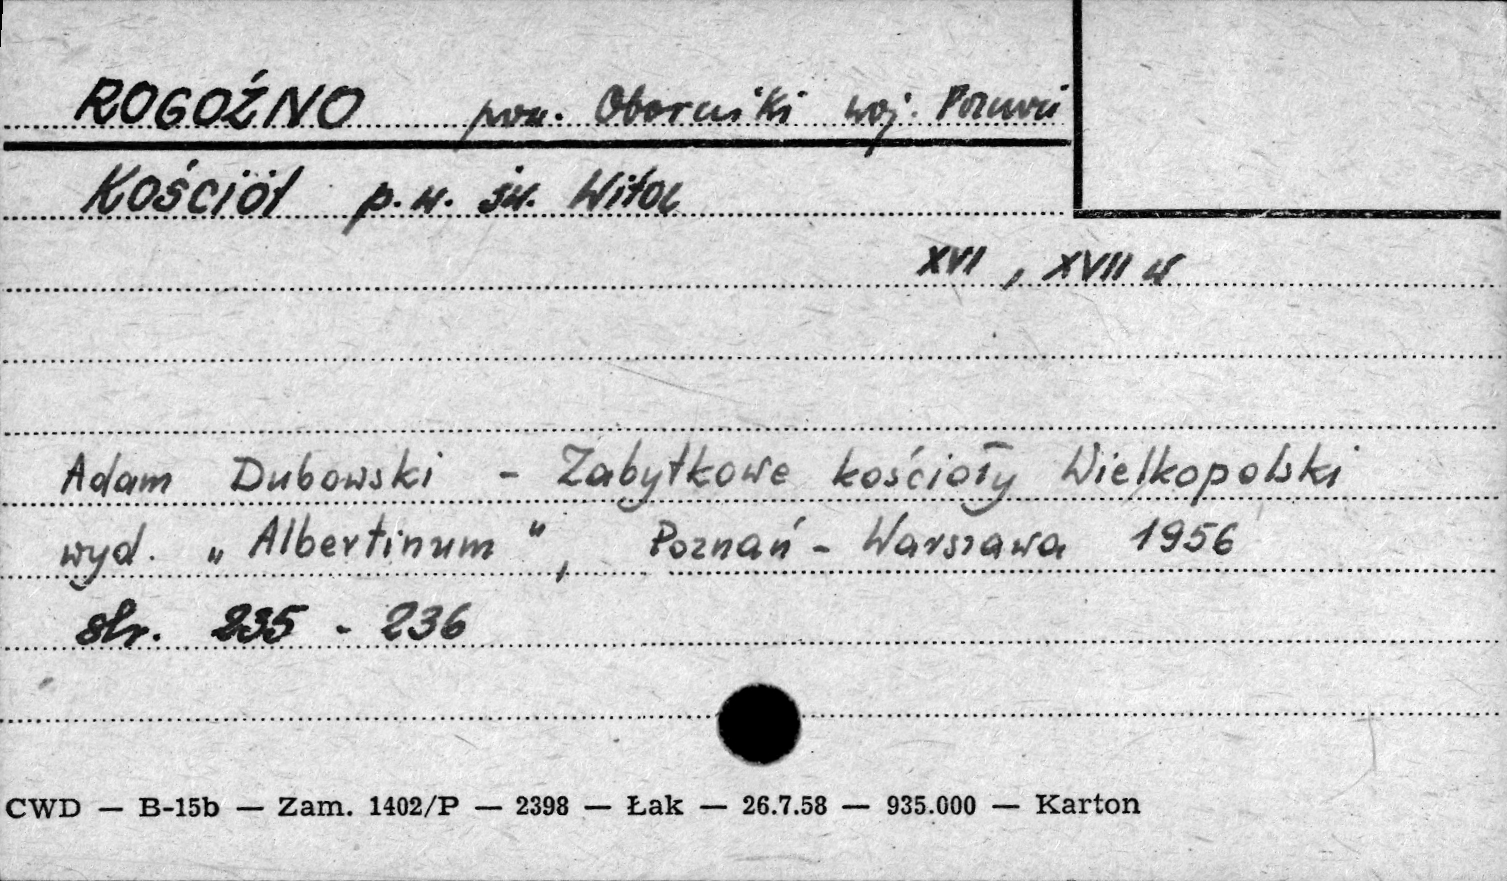 ROGOŹNO pow. Oborniki woj. Poznań
Kościół p.w. św. Wita
XVI, XVII w
Adam Dubowski - Zabytkowe kościoły Wielkopolski
wyd. „Albertinum", Poznań - Warszawa 1956
str. 235 - 236
CWD — B-15b — Zam. 1402/P — 2398 — Łak — 26.7.58 — 935.000 — Karton